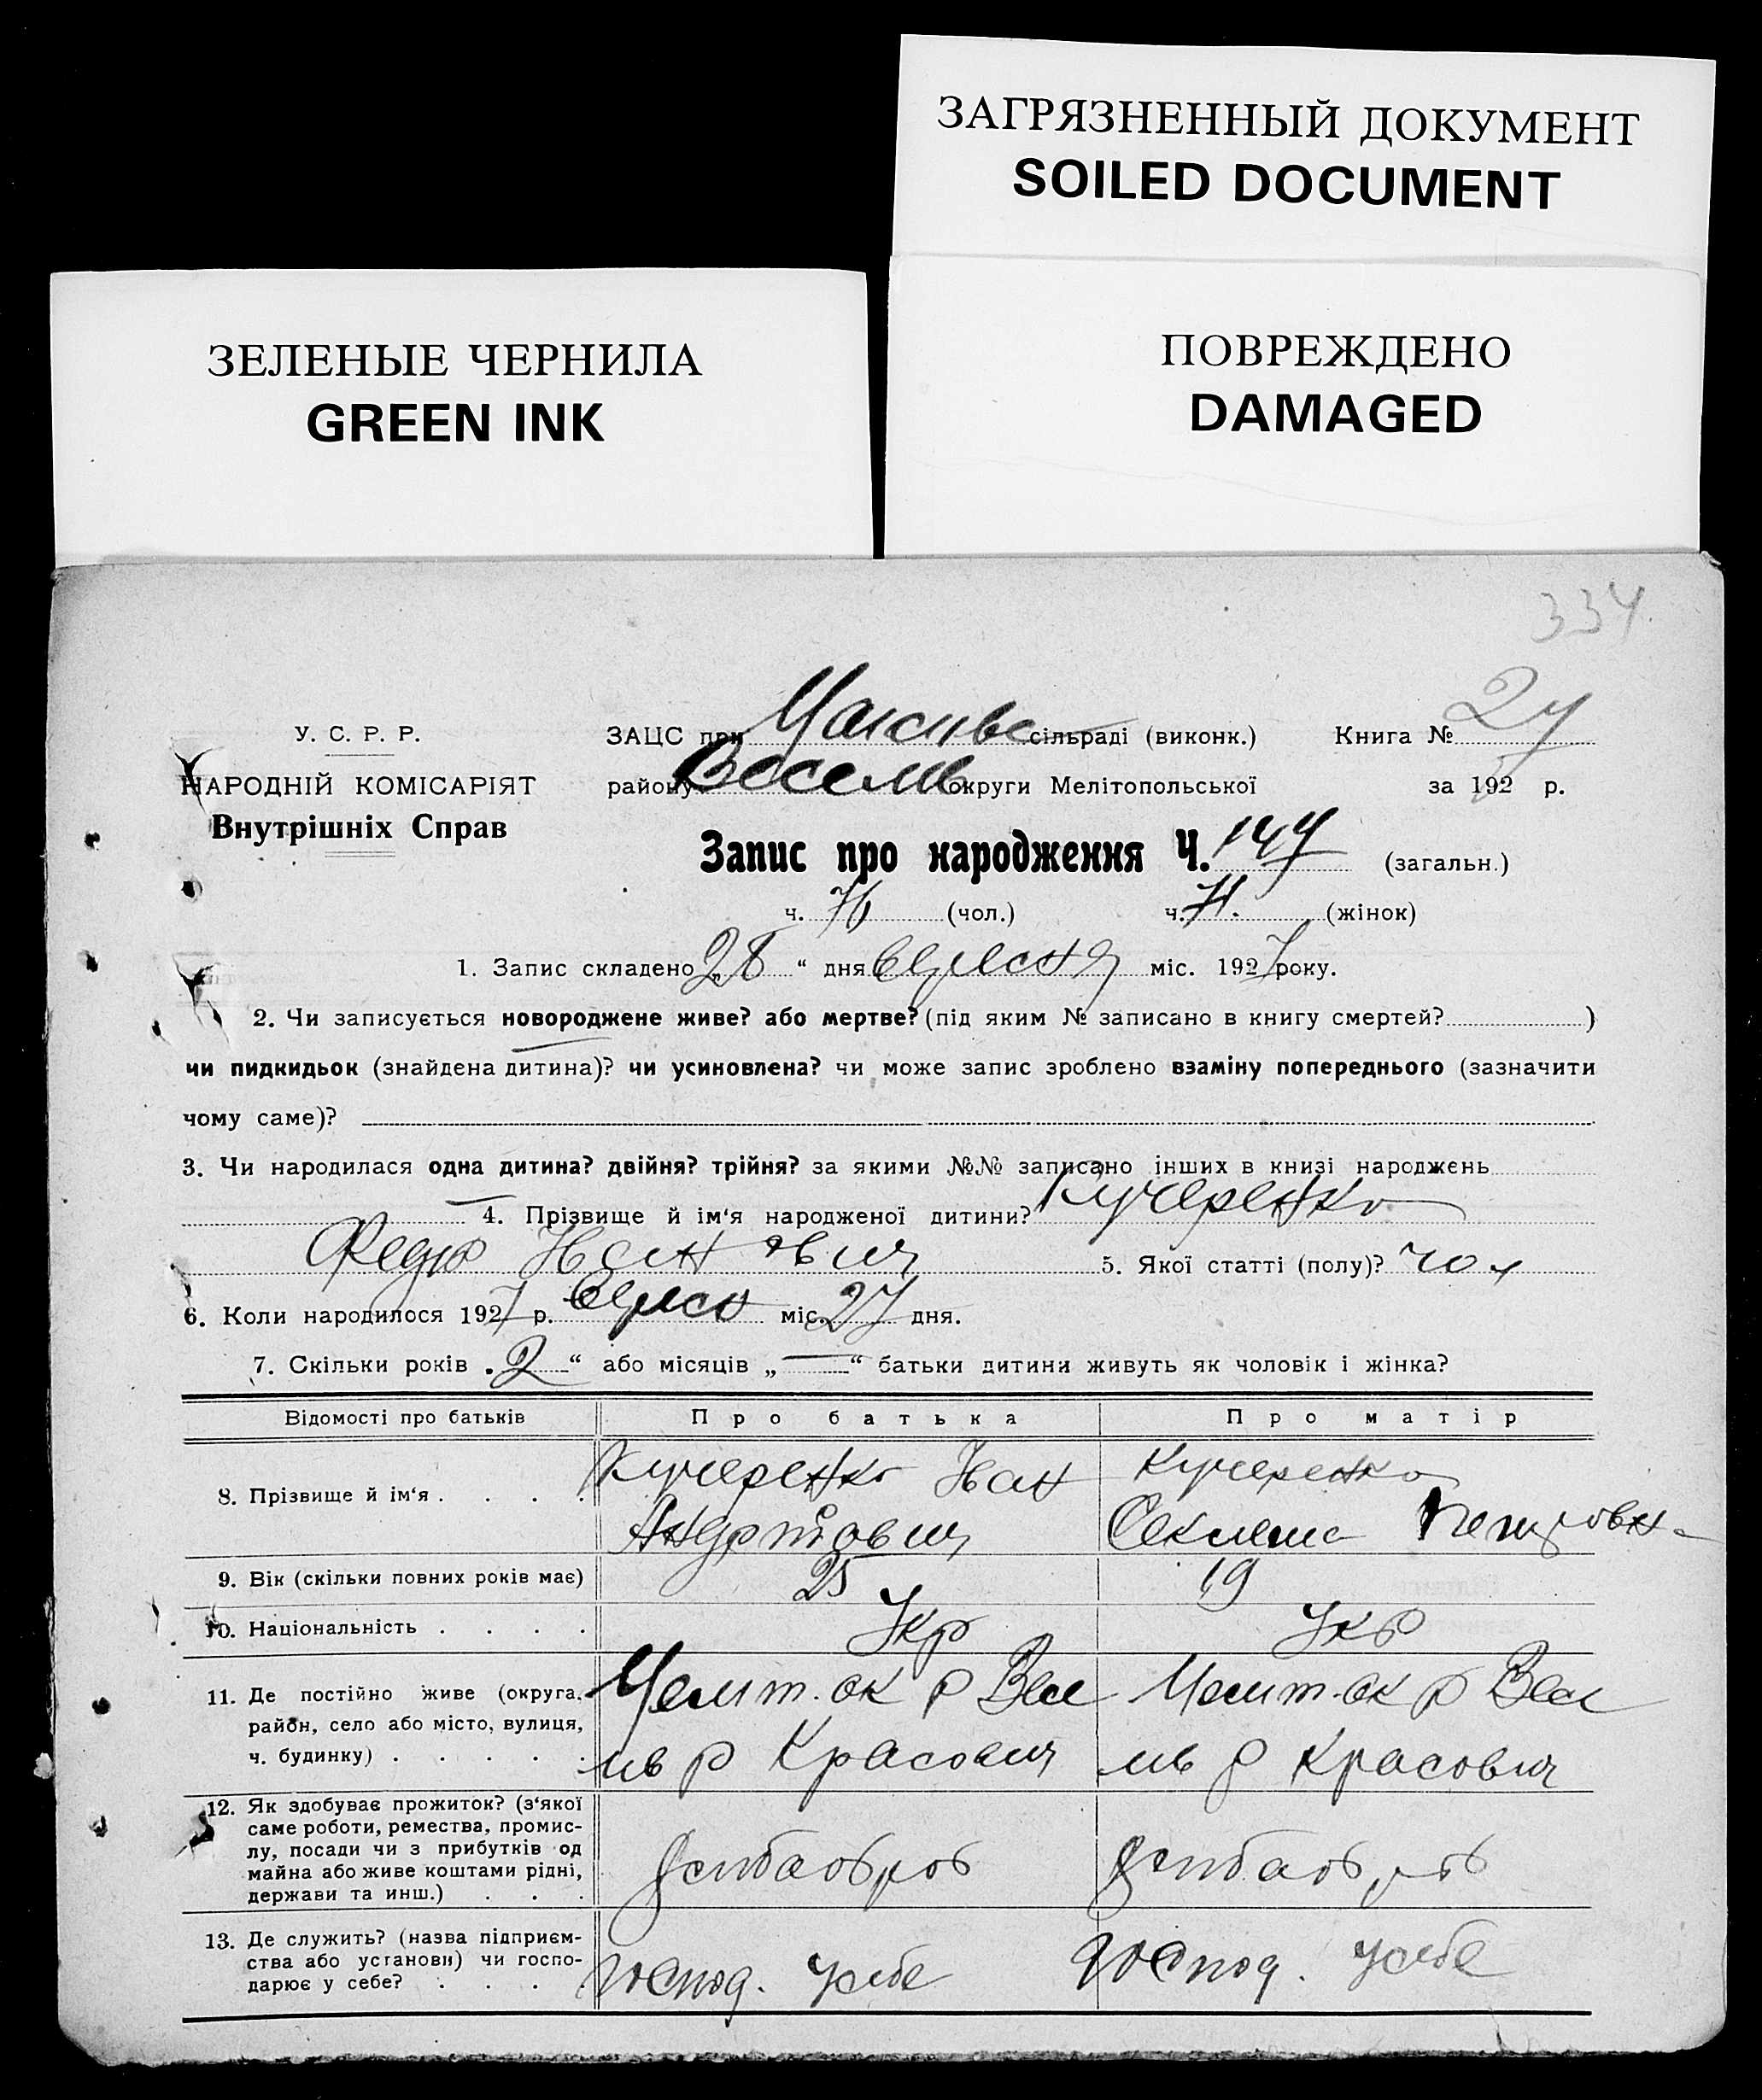 ЗАГРЯЗНЕННЫЙ ДОКУМЕНТ
SOILED DOCUMENT
ЗЕЛЕНЫЕ ЧЕРНИЛА
GREEN INK
ПОВРЕЖДЕНО
DAMAGED
334.
У. С. Р. Р.
ЗАЦС при сільраді (виконк.) Книга № 27
НАРОДНІЙ КОМІСАРІЯТ
району округи Мелітопольської за 192 р.
Внутрішніх Справ
Запис про народження Ч. 147 (загальн.)
ч. 76 (чол.) ч. 71. (жінок)
1. Запис складено „28“ дня вересня міс. 1927 року.
2. Чи записується новороджене живе? або мертве? (під яким № записано в книгу смертей? )
чи пидкидьок (знайдена дитина)? чи усиновлена? чи може запис зроблено взаміну попереднього (зазначити
чому саме)?
3. Чи народилася одна дитина? двійня? трійня? за якими №№ записано інших в книзі народжень
— 4. Прізвище й ім‘я народженої дитини? Кучеренко
Федір Иванович 5. Якої статті (полу)? чол
6. Коли народилося 1927 р. вересн міс. 27 дня.
7. Скільки років „2“ або місяців „—“ батьки дитини живуть як чоловік і жінка?
Відомості про батьків Про батька Про матір
8. Прізвище й ім‘я . . . . Кучеренко Иван Кучеренко
Петровна
9. Вік (скільки повних років має) 25 19
10. Національність . . . . Укр Укр
11. Де постійно живе (округа, Мелит. ок р Весе Мелит. ок р Весе
район, село або місто, вулиця,
ч. будинку) . . . . .
12. Як здобуває прожиток? (з‘якої
саме роботи, ремества, промис-
лу, посади чи з прибутків од
майна або живе коштами рідні,
держави та инш.) . . .
хлібороб хлібороб
13. Де служить? (назва підприєм-
ства або установи) чи госпо-
дарює у себе? . . . .
господ. у себе господ. у себе